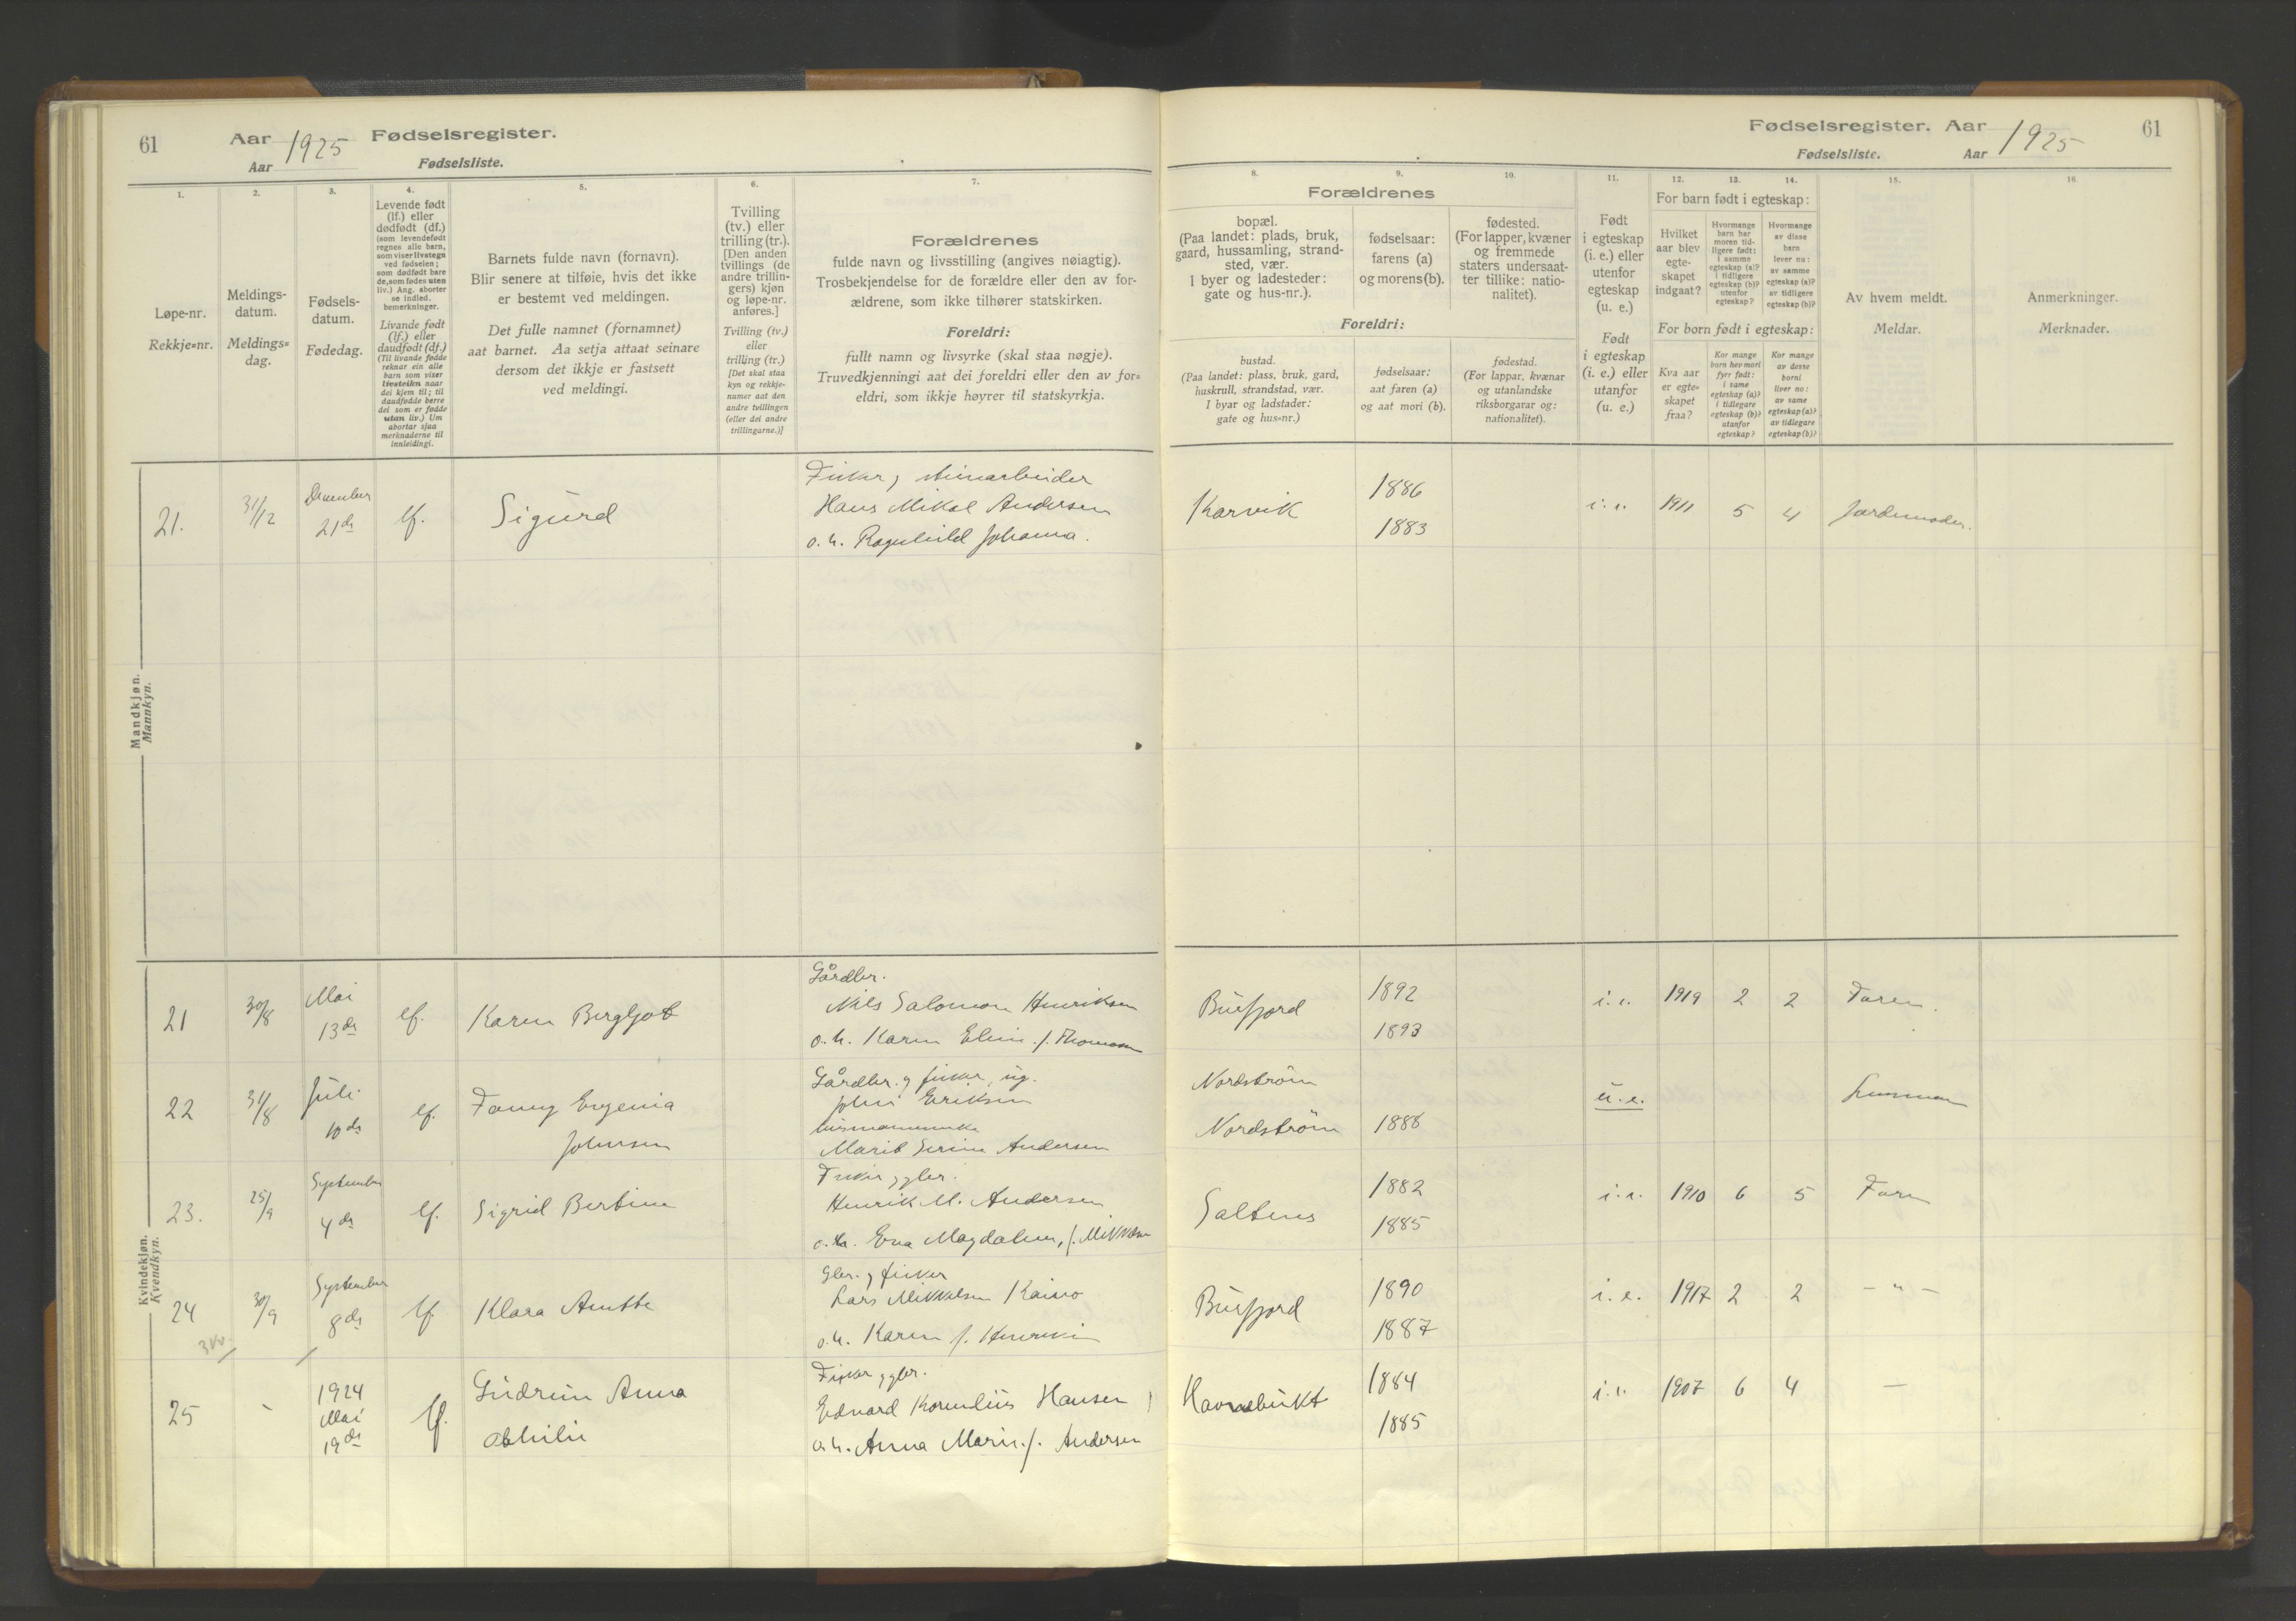 61
Aar 1925 Fødselsregister.
Aar Fødselsliste.
1.
Løpe-nr.
Rekkje=nr.
2.
Meldings-
datum.
Meldings=
dag.
3.
Fødsels-
datum.
Fødedag.
4.
Levende født
(lf.) eller
dødfødt (df.)
(som levendefødt
regnes alle barn,
som viser livstegn
ved fødselen;
som dødfødt bare
de, som fødes uten
liv.) Ang. aborter
se indled.
bemerkninger.
Livande født
(lf.) eller
daudfødt (df.)
(Til livande fødde
reknar ein alle
barn som viser
livsteikn naar
dei kjem til; til
daudfødde berre
dei som er fødde
utan liv.) Um
abortar sjaa
merknaderne til
innleidingi.
5.
Barnets fulde navn (fornavn).
Blir senere at tilføie, hvis det ikke
er bestemt ved meldingen.
Det fulle namnet (fornamnet)
aat barnet. Aa setja attaat seinare
dersom det ikkje er fastsett
ved meldingi.
6.
Tvilling
(tv.) eller
trilling (tr.).
[Den anden
tvillings (de
andre trillin-
gers) kjøn
og løpe-nr.
anføres.]
Tvilling (tv.)
eller
trilling (tr.)
[Det skal staa
kyn og rekkje-
numer aat den
andre tvillingen
(eller dei andre
trillingarne.)]
7.
Forældrenes
fulde navn og livsstilling (angives nøiagtig).
Trosbekjendelse for de forældre eller den av for-
ældrene, som ikke tilhører statskirken.
Foreldri:
fullt namn og livsyrke (skal staa nøgje).
Truvedkjenningi aat dei foreldri eller den av for=
eldri, som ikkje høyrer til statskyrkja.
Fødselsregister. Aar 1925
61
Fødselsliste. Aar
8.
9.
10.
Forældrenes
bopæl.
(Paa landet: plads, bruk,
gaard, hussamling, strand-
sted, vær.
I byer og ladesteder:
gate og hus-nr.).
fødselsaar:
farens (a)
og morens (b).
fødested.
(For lapper, kvæner
og fremmede
staters undersaat-
ter tillike: natio-
nalitet).
Foreldri:
bustad.
(Paa landet: plass, bruk, gard,
huskrull, strandstad, vær.
I byar og ladstader:
gate og hus=nr.)
fødselsaar:
aat faren (a)
og aat mori (b).
fødestad.
(For lappar, kvænar
og utanlandske
riksborgarar og:
nationalitet).
11.
Født
i egteskap
(i. e.) eller
utenfor
egteskap
(u. e.)
Født
i egteskap
(i. e.) eller
utanfor
(u. e.)
12.
13.
14.
For barn født i egteskap:
Hvilket
aar blev
egte-
skapet
indgaat?
Hvormange
barn har
moren tid-
ligere født:
i samme
egteskap (a)?
i tidligere
egteskap (b)?
utenfor
egteskap?
Hvormange
av disse
barn
lever nu:
av samme
egteskap (a)?
av tidligere
egteskap (b)?
For born født i egteskap:
Kva aar
er egte=
skapet
fraa?
Kor mange
born hev mori
fyrr født:
i same
egteskap (a)?
i tidlegare
egteskap (b)?
utanfor
egteskap?
Kor mange
av desse
borni
liver no:
av same
egteskap (a)?
av tidlegare
egteskap (b)?
15.
Av hvem meldt.
Meldar.
16.
Anmerkninger.
Merknader.
Mandkjøn.
Mannkyn.
21.
31/12
December
21de
lf.
Sigurd
Fisker, Hans Mikal Andersen
o. h. Ragnhild Johanna.
Karvik
1886
1883
i. e. 1911 5 4 Jordemoder.
Kvindekjøn.
Kvendkyn.
21
30/8
Mai
13de
lf.
Karen Bergljot
Gårdbr.
Nils Salomon Henriksen
o. h. Karen Elin f. Thomassen
Burfjord
1892
1893
i. e. 1919 2 2 Faren.
22
31/8
Juli
10de
lf.
Fanny Evgenia
Johnsen
Gårdbr. og fisker, ug.
John Eriksen
Marit Serine Andersen
Nordström
Nordström 1886
u. e. Lensman
23.
25/9
September
4de
lf.
Sigrid Bertine
Fisker og gbr.
Henrik M. Andersen
o. h. Eva Magdalene, f. Mikkelsen
Saltnes
1882
1885
i. e. 1910 6 5 Faren
24
30/9
September
8de
lf.
Klara Anette
Gbr. og fisker
Lars Mikkelsen Kaino
o. h. Karen f. Henriksen
Burfjord
1890
1887
i. e. 1917 2 2 – " –
25
-
1924
Mai
19de
lf.
Gudrun Anna
Othilie
Fisker og gbr.
Edvard Kornelius Hansen
o. h. Anna Marie f. Andersen
Havnebukt
1884
1885
i. e. 1907 6 4 –